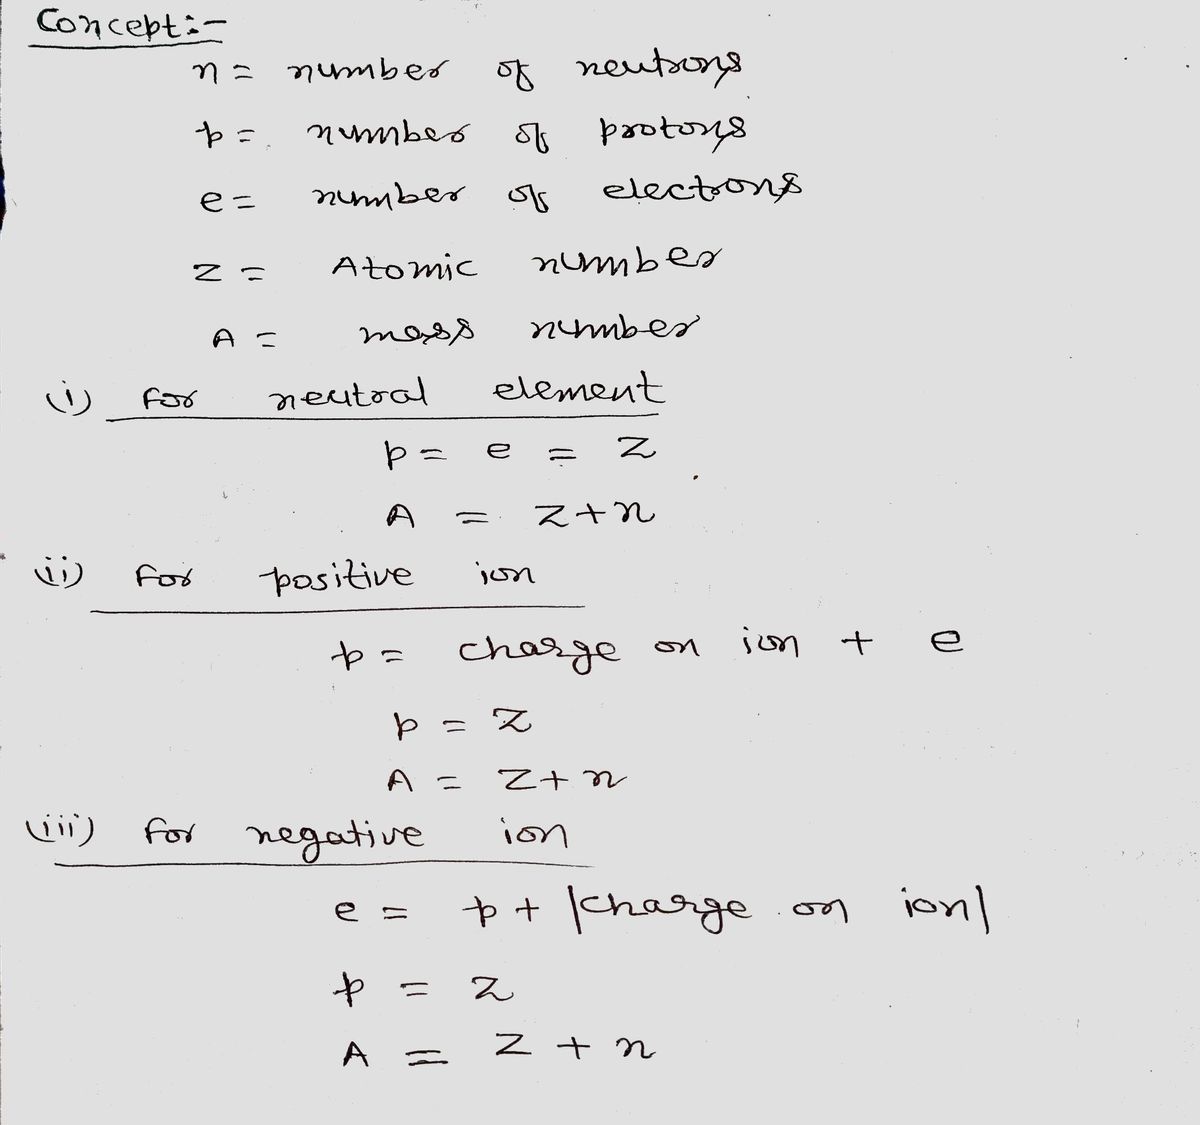 Concept:-
n = number of neutrons
p = number of protons
e = number of electrons
Z = Atomic number
A = mass number
(i) for neutral element
p = e = Z
A = Z+n
(ii) For positive ion
p = charge on ion + e
p = Z
A = Z+n
(iii) for negative ion
e = p + |charge on ion|
p = Z
A = Z + n